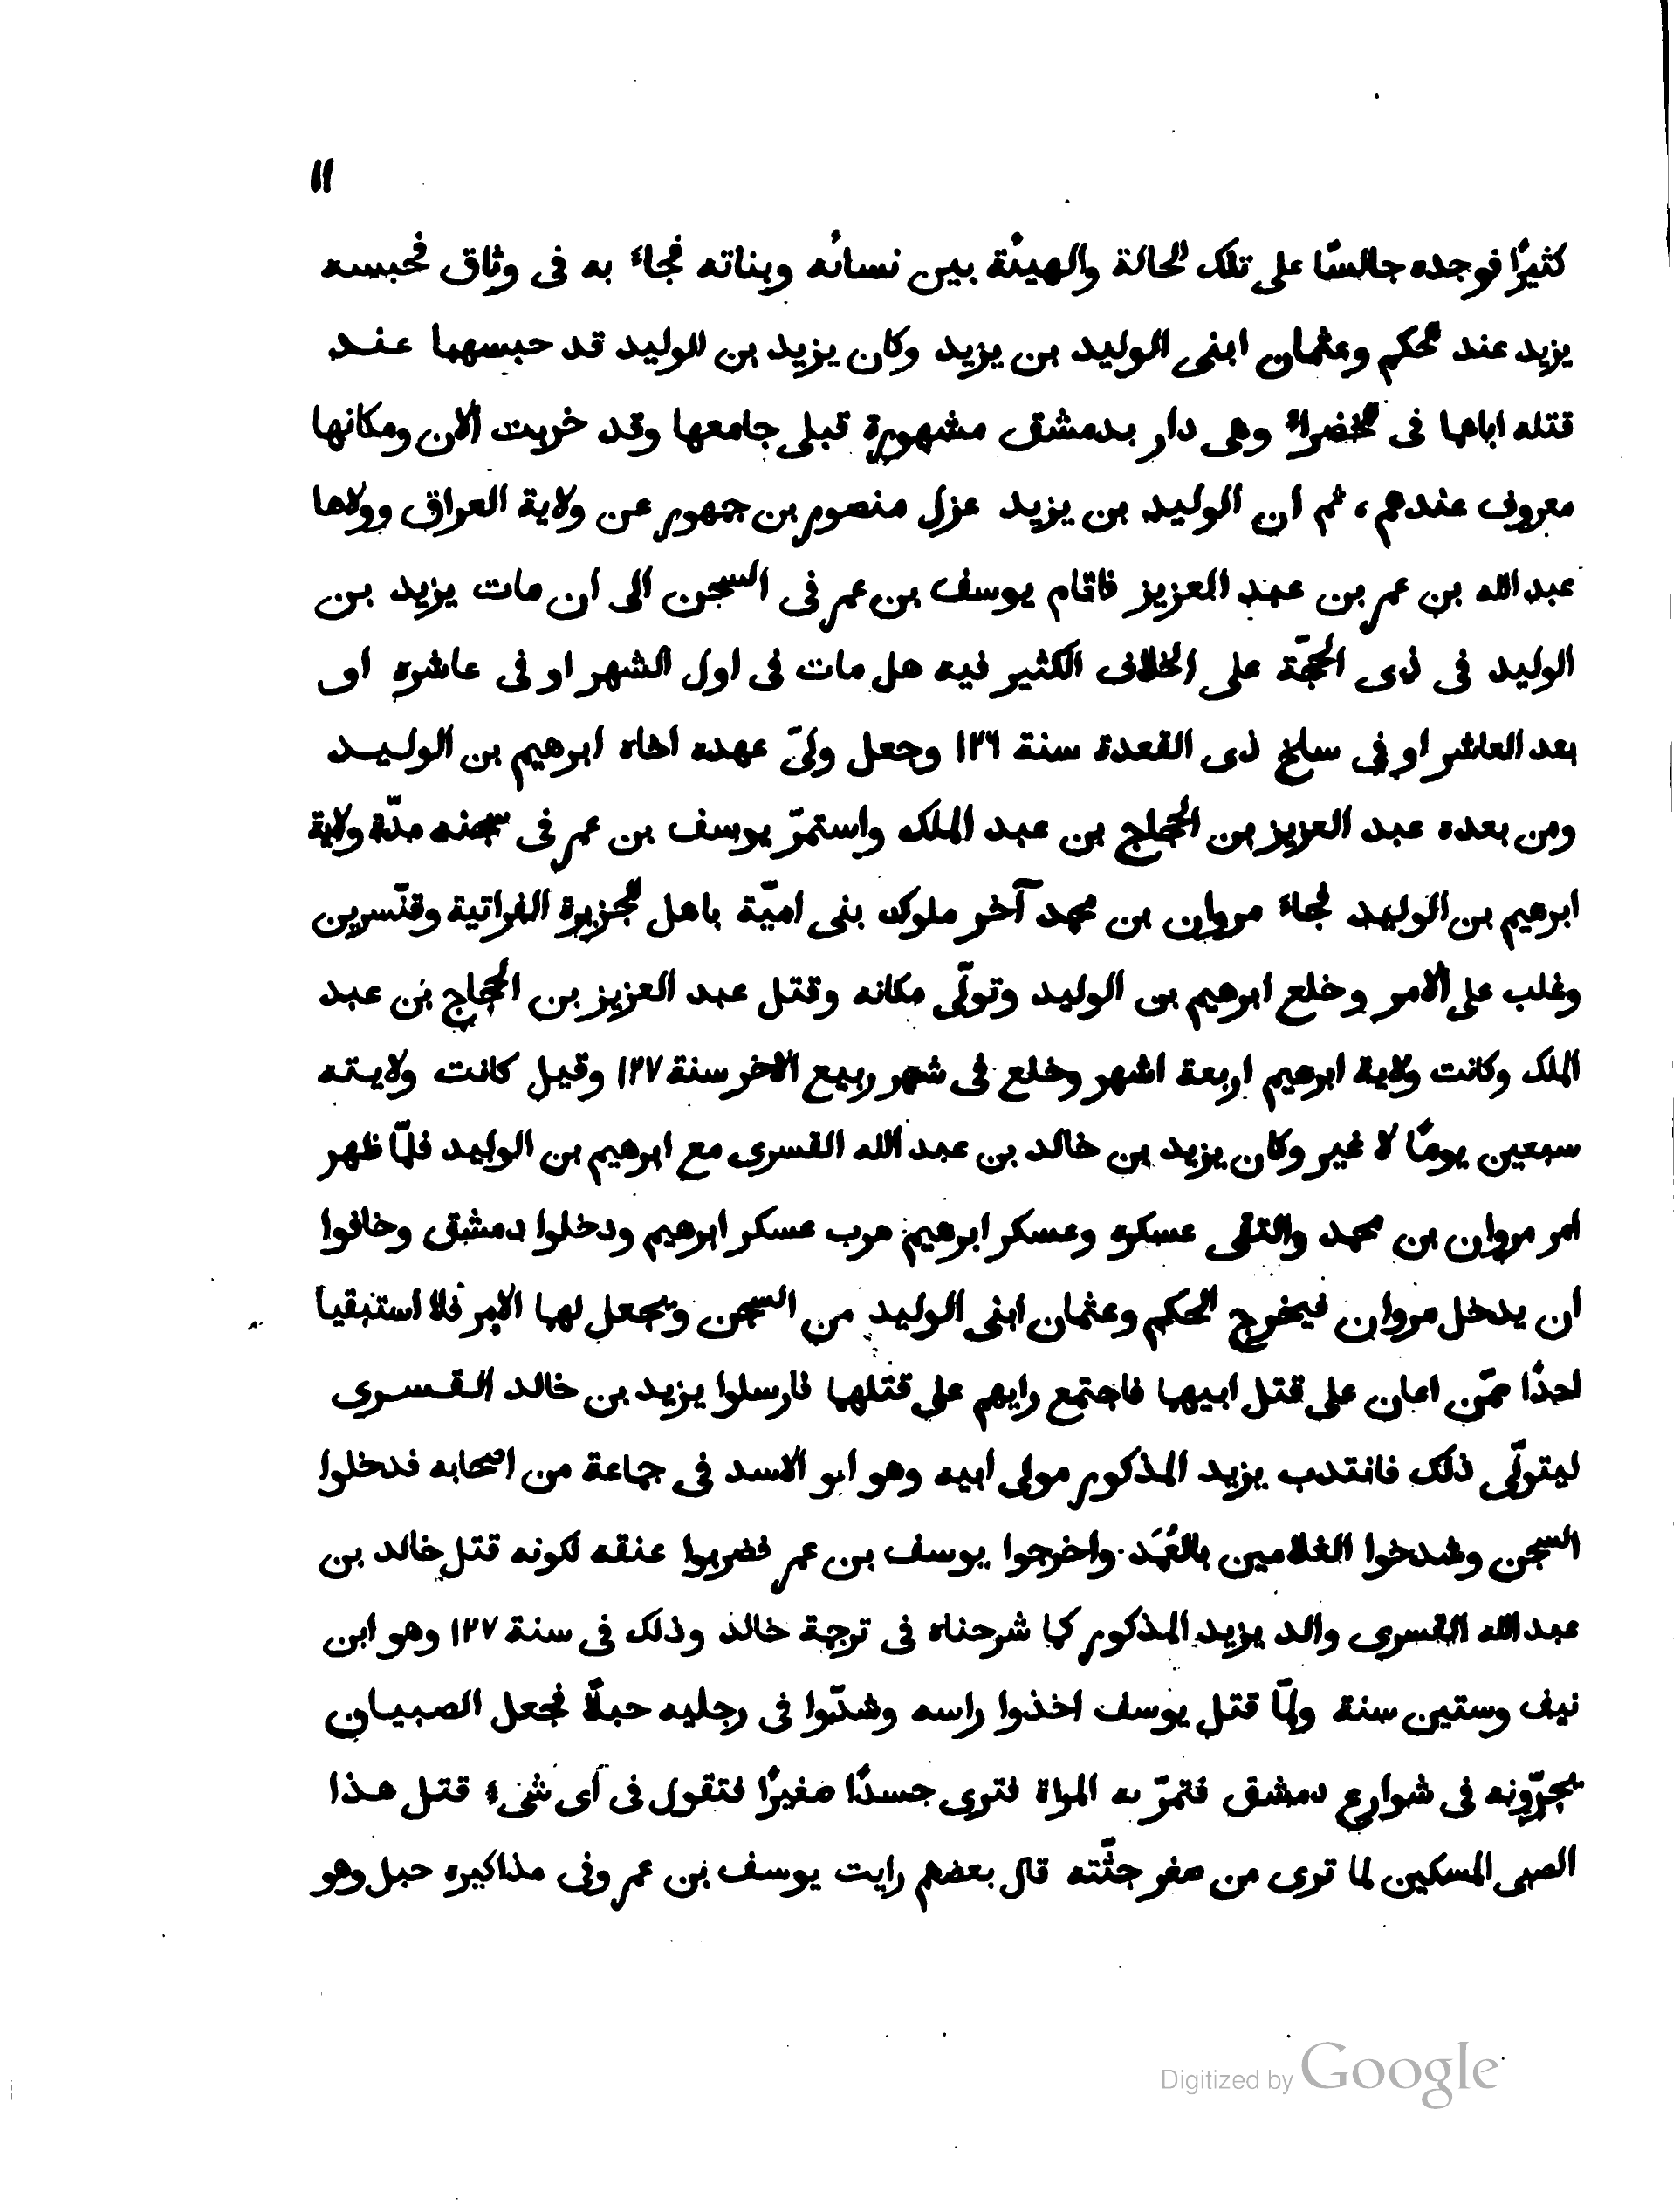 ١١
كثيرًا فوجده جالسًا على تلك الحالة والهيئة بين نسائه وبناته فجاء به فى وثاق فحبسه
يزيد عند الحكم وعثمان ابنى الوليد بن يزيد وكان يزيد بن الوليد قد حبسهما عند
قتله اباهما فى الخضراء وهى دار بدمشق مشهورة قبلى جامعها وقد خربت الان ومكانها
معروف عندهم، ثم ان الوليد بن يزيد عزل منصور بن جهور عن ولاية العراق وولاها
عبد الله بن عمر بن عبد العزيز فاقام يوسف بن عمر فى السجن الى ان مات يزيد بن
الوليد فى ذى الحجّة على الخلاف الكثير فيه هل مات فى اول الشهر او فى عاشره او
بعد العاشر او فى سلخ ذى القعدة سنة ١٢٦ وجعل ولىّ عهده اخاه ابرهيم بن الوليد
ومن بعده عبد العزيز بن الحجاج بن عبد الملك واستمرّ يوسف بن عمر فى سجنه مدّة ولاية
ابرهيم بن الوليد فجاء مروان بن محمد آخر ملوك بنى اميّة باهل الجزيرة الفراتية وقنّسرين
وغلب على الامر وخلع ابرهيم بن الوليد وتولّى مكانه وقتل عبد العزيز بن الحجاج بن عبد
الملك وكانت ولاية ابرهيم اربعة اشهر وخلع فى شهر ربيع الاخر سنة ١٢٧ وقيل كانت ولايته
سبعين يومًا لا غير وكان يزيد بن خالد بن عبد الله القسرى مع ابرهيم بن الوليد فلمّا ظهر
امر مروان بن محمد والتقى عسكره وعسكر ابرهيم هرب عسكر ابرهيم ودخلوا دمشق وخافوا
ان يدخل مروان فيخرج الحكم وعثمان ابنى الوليد من السجن ويجعل لهما الامر فلا استنبقيا
احدًا ممّن اعان على قتل ابيهما فاجتمع رايهم على قتلهما فارسلوا يزيد بن خالد القسرى
ليتولّى ذلك فانتدب يزيد المذكور مولى ابيه وهو ابو الاسد فى جماعة من اصحابه فدخلوا
السجن وشدخوا الغلامين بالعُمَد واخرجوا يوسف بن عمر فضربوا عنقه لكونه قتل خالد بن
عبد الله القسرى والد يزيد المذكور كما شرحناه فى ترجمة خالد وذلك فى سنة ١٢٧ وهو ابن
نيف وستين سنة ولمّا قتل يوسف اخذوا راسه وشدّوا فى رجليه حبلًا فجعل الصبيان
يجرّونه فى شوارع دمشق فتمرّ به المراة فترى جسدًا صغيرًا فتقول فى اى شىء قتل هذا
الصبى المسكين لما ترى من صغر جثّته قال بعضهم رايت يوسف بن عمر وفى مذاكيره حبل وهو
Digitized by Google